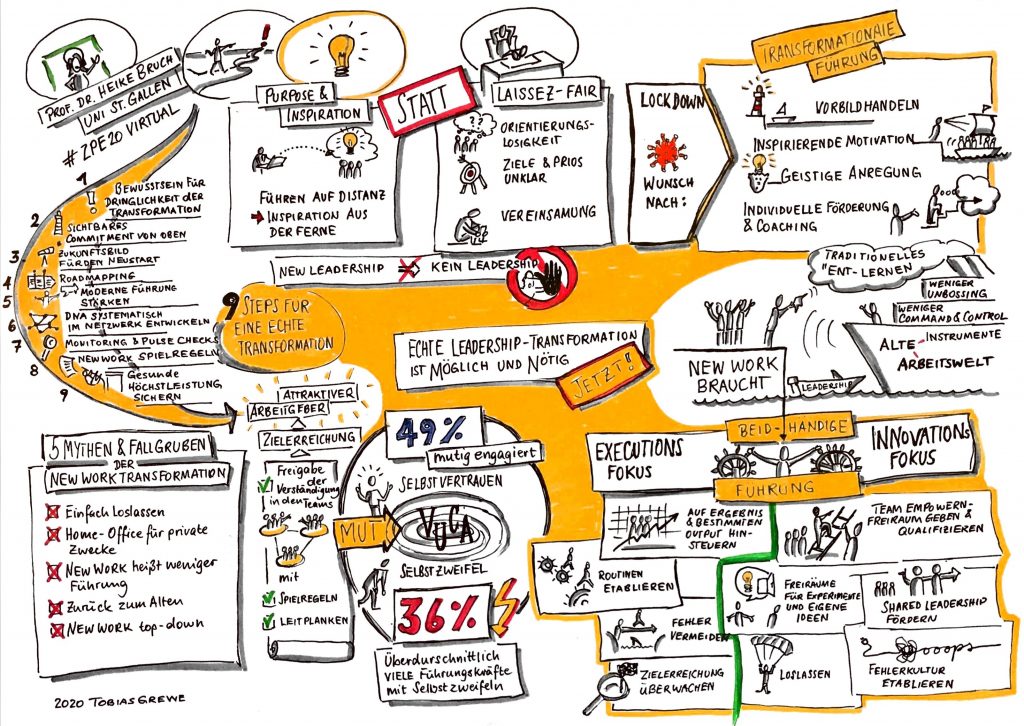 PROF. DR. HEIKE BRUCH
UNI ST. GALLEN
# ZPE20 VIRTUAL
!
PURPOSE &
INSPIRATION
FÜHREN AUF DISTANZ
→ INSPIRATION AUS
DER FERNE
STATT
LAISSEZ-FAIR
ORIENTIERUNGS-
LOSIGKEIT
ZIELE & PRIOS
UNKLAR
VEREINSAMUNG
LOCKDOWN
WUNSCH
NACH:
TRANSFORMATIONALE
FÜHRUNG
VORBILDHANDELN
INSPIRIERENDE MOTIVATION
GEISTIGE ANREGUNG
INDIVIDUELLE FÖRDERUNG
& COACHING
1
! BEWUSSTSEIN FÜR
DRINGLICHKEIT DER
TRANSFORMATION
2
SICHTBARES
COMMITMENT VON OBEN
3
ZUKUNFTSBILD
FÜR DEN NEUSTART
4
ROADMAPPING
5
→ MODERNE FÜHRUNG
STÄRKEN
6
DNA SYSTEMATISCH
IM NETZWERK ENTWICKELN
7
MONITORING & PULSE CHECKS
8
NEW WORK SPIELREGELN
9
Gesunde
HÖCHSTLEISTUNG
SICHERN
9 STEPS FÜR
EINE ECHTE
TRANSFORMATION
NEW LEADERSHIP ⇒ KEIN LEADERSHIP
ECHTE LEADERSHIP-TRANSFORMATION
IST MÖGLICH UND NÖTIG
JETZT!
TRADITIONELLES
"ENT-LERNEN
WENIGER
UNBOSSING
WENIGER
COMMAND & CONTROL
ALTE INSTRUMENTE
ARBEITSWELT
NEW WORK
BRAUCHT
LEADERSHIP
5 MYTHEN & FALLGRUBEN
DER
NEW WORK TRANSFORMATION
Einfach loslassen
Home-Office für private
Zwecke
NEW WORK heißt weniger
Führung
Zurück zum Alten
NEW WORK top-down
2020 TOBIAS GREWE
ATTRAKTIVER
ARBEITGEBER
ZIELERREICHUNG
Freigabe
der
Verständigung
in den Teams
mit
SPIELREGELN
LEITPLANKEN
MUT
49%
mutig engagiert
SELBSTVERTRAUEN
VUCA
SELBSTZWEIFEL
36%
Überdurschnittlich
VIELE Führungskräfte
mit Selbstzweifeln
BEID-HÄNDIGE
FÜHRUNG
EXECUTIONS
FOKUS
AUF ERGEBNIS
& BESTIMMTEN
OUTPUT HIN-
STEUERN
ROUTINEN
ETABLIEREN
FEHLER
VERMEIDEN
ZIELERREICHUNG
ÜBERWACHEN
INNOVATIONS
FOKUS
TEAM EMPOWERN-
FREIRAUM GEBEN &
QUALIFIZIEREN
FREIRÄUME
FÜR EXPERIMENTE
UND EIGENE
IDEEN
SHARED LEADERSHIP
FÖRDERN
LOSLASSEN
ooops
FEHLERKULTUR
ETABLIEREN